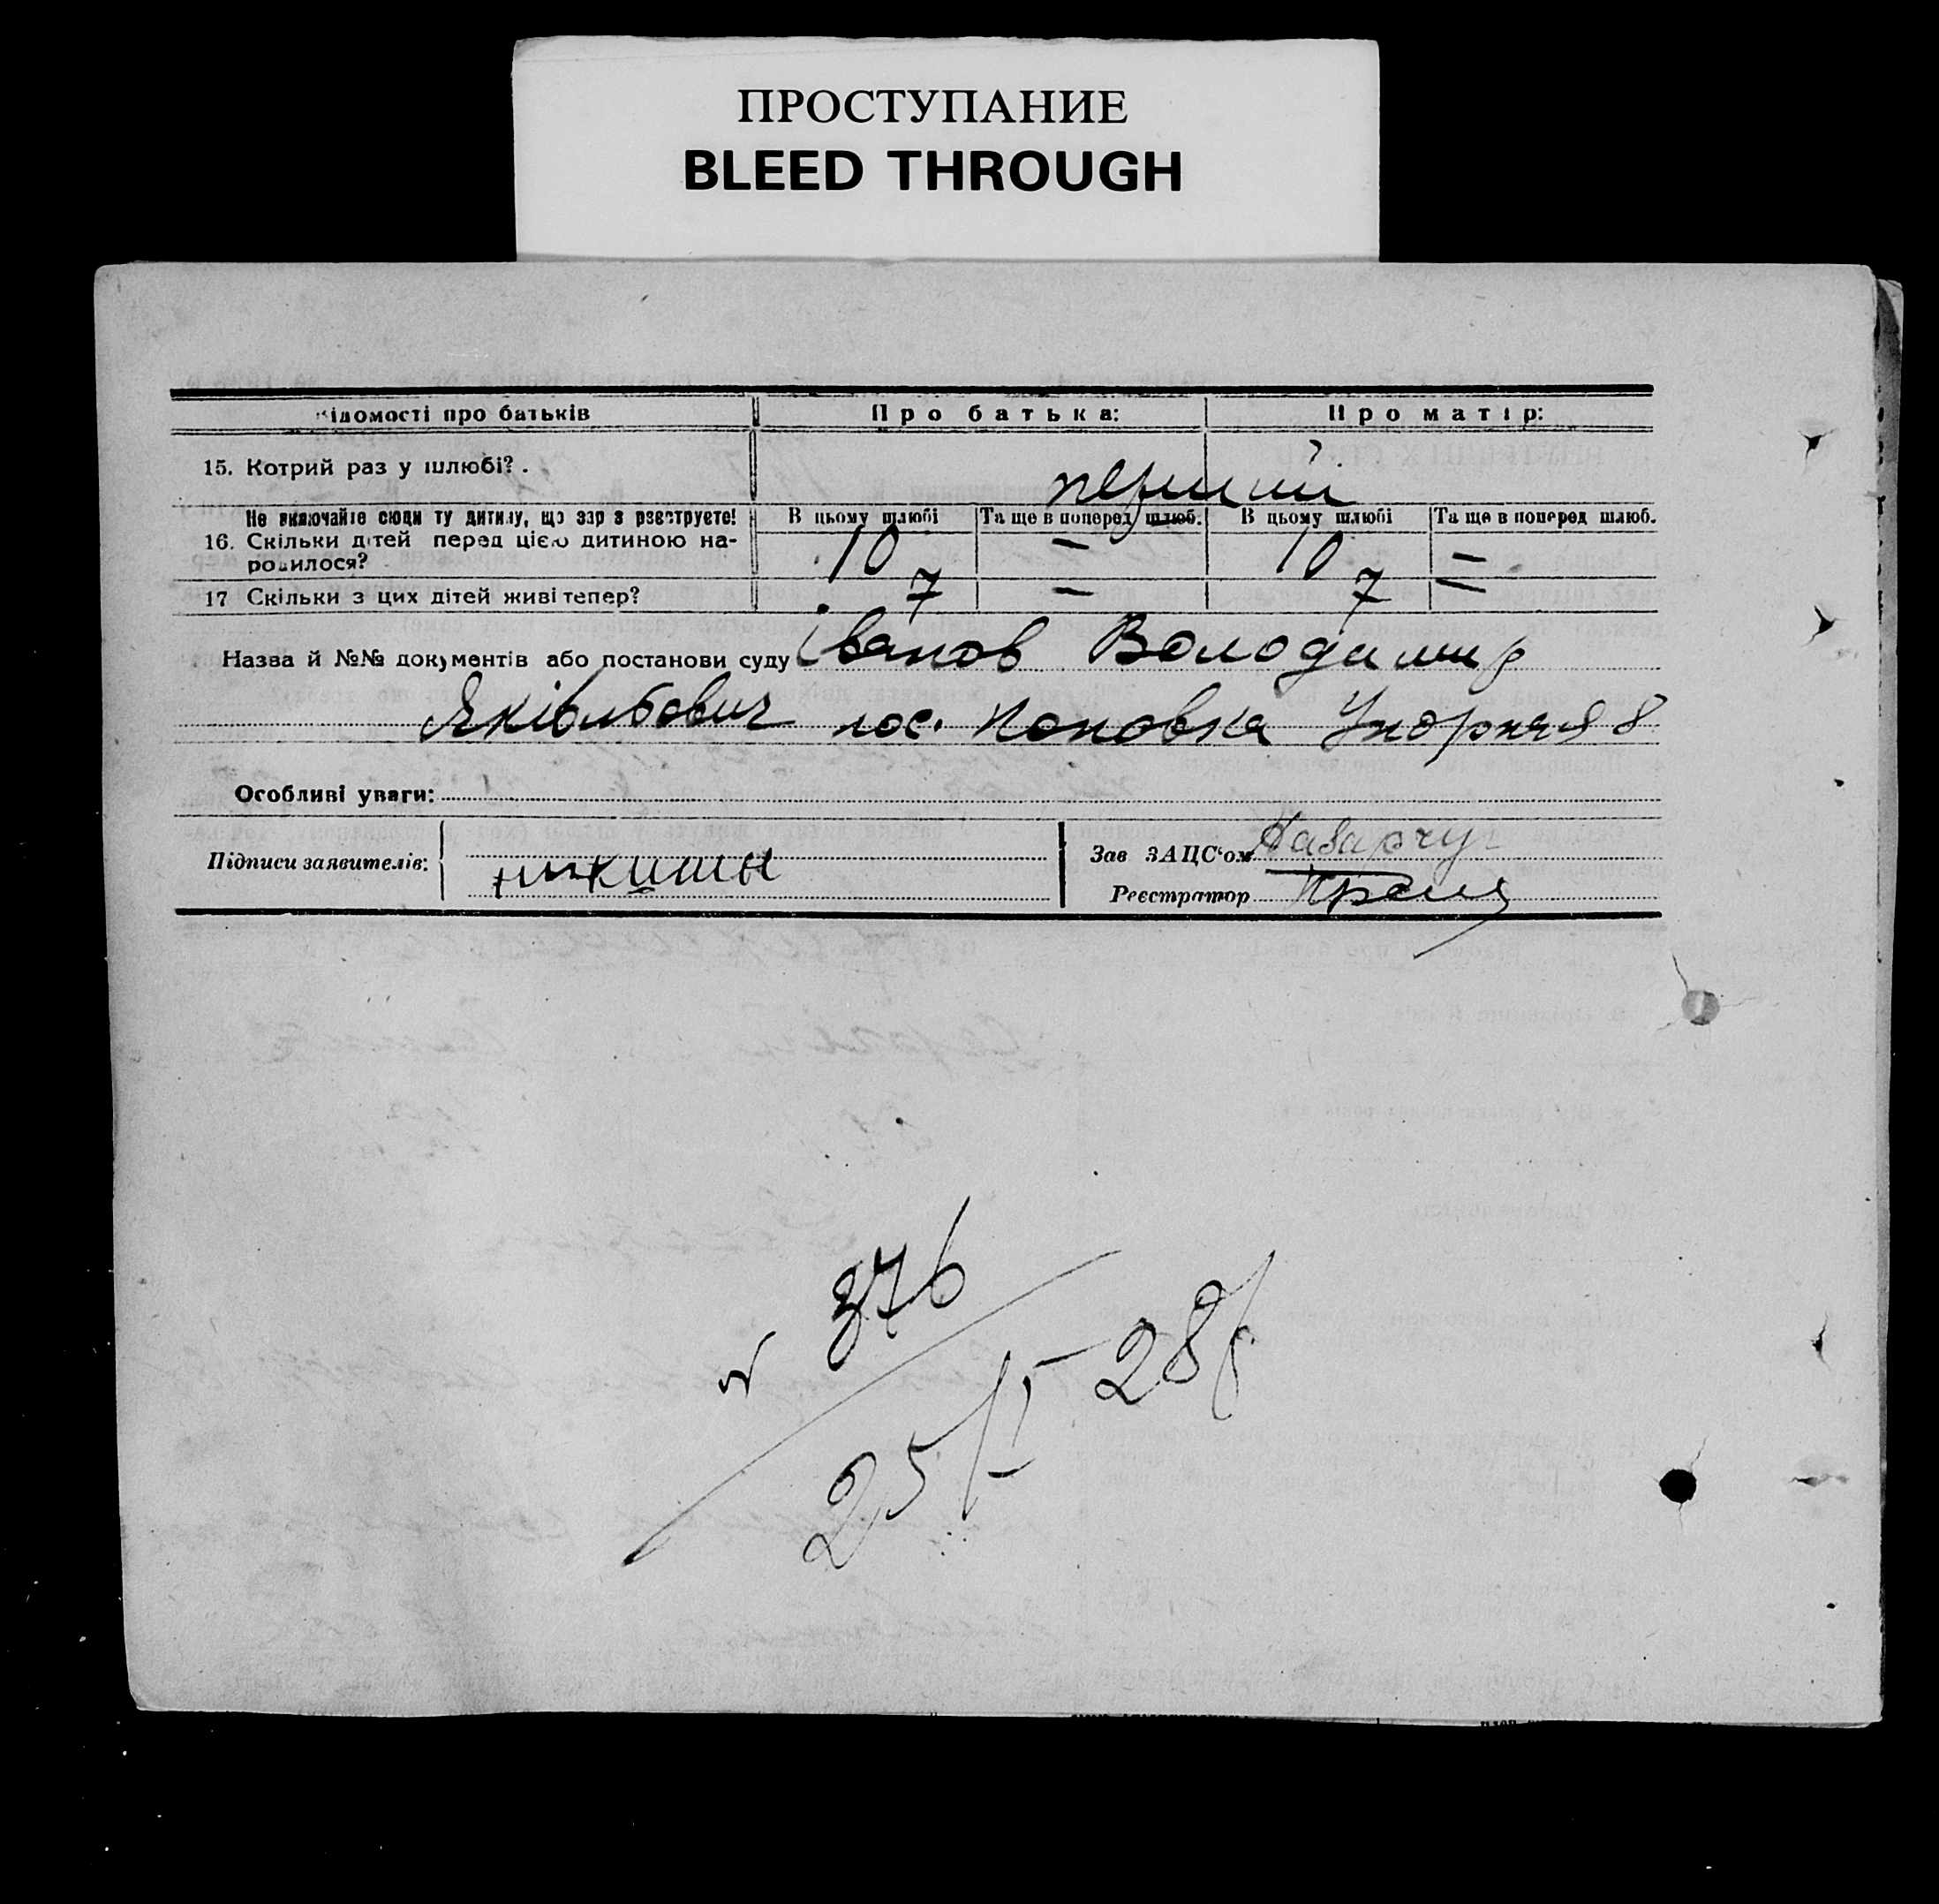 ПРОСТУПАНИЕ
BLEED THROUGH
Відомості про батьків Про батька: Про матір:
15. Котрий раз у шлюбі?. перший
Не включайте сюди ту дитину, що зараз реєструєте! В цьому шлюбі Та ще в поперед шлюб. В цьому шлюбі Та ще в поперед шлюб.
16. Скільки дітей перед цією дитиною на-
родилося? 10 — 10 —
17 Скільки з цих дітей живі тепер? 7 — 7 —
Назва й №№ документів або постанови суду Іванов Володимир
Яківльбович пос. Поповка Упорная 8
Особливі уваги:
Підписи заявителів: Зав ЗАЦС‘ом
Реєстратор
376
25/I-28